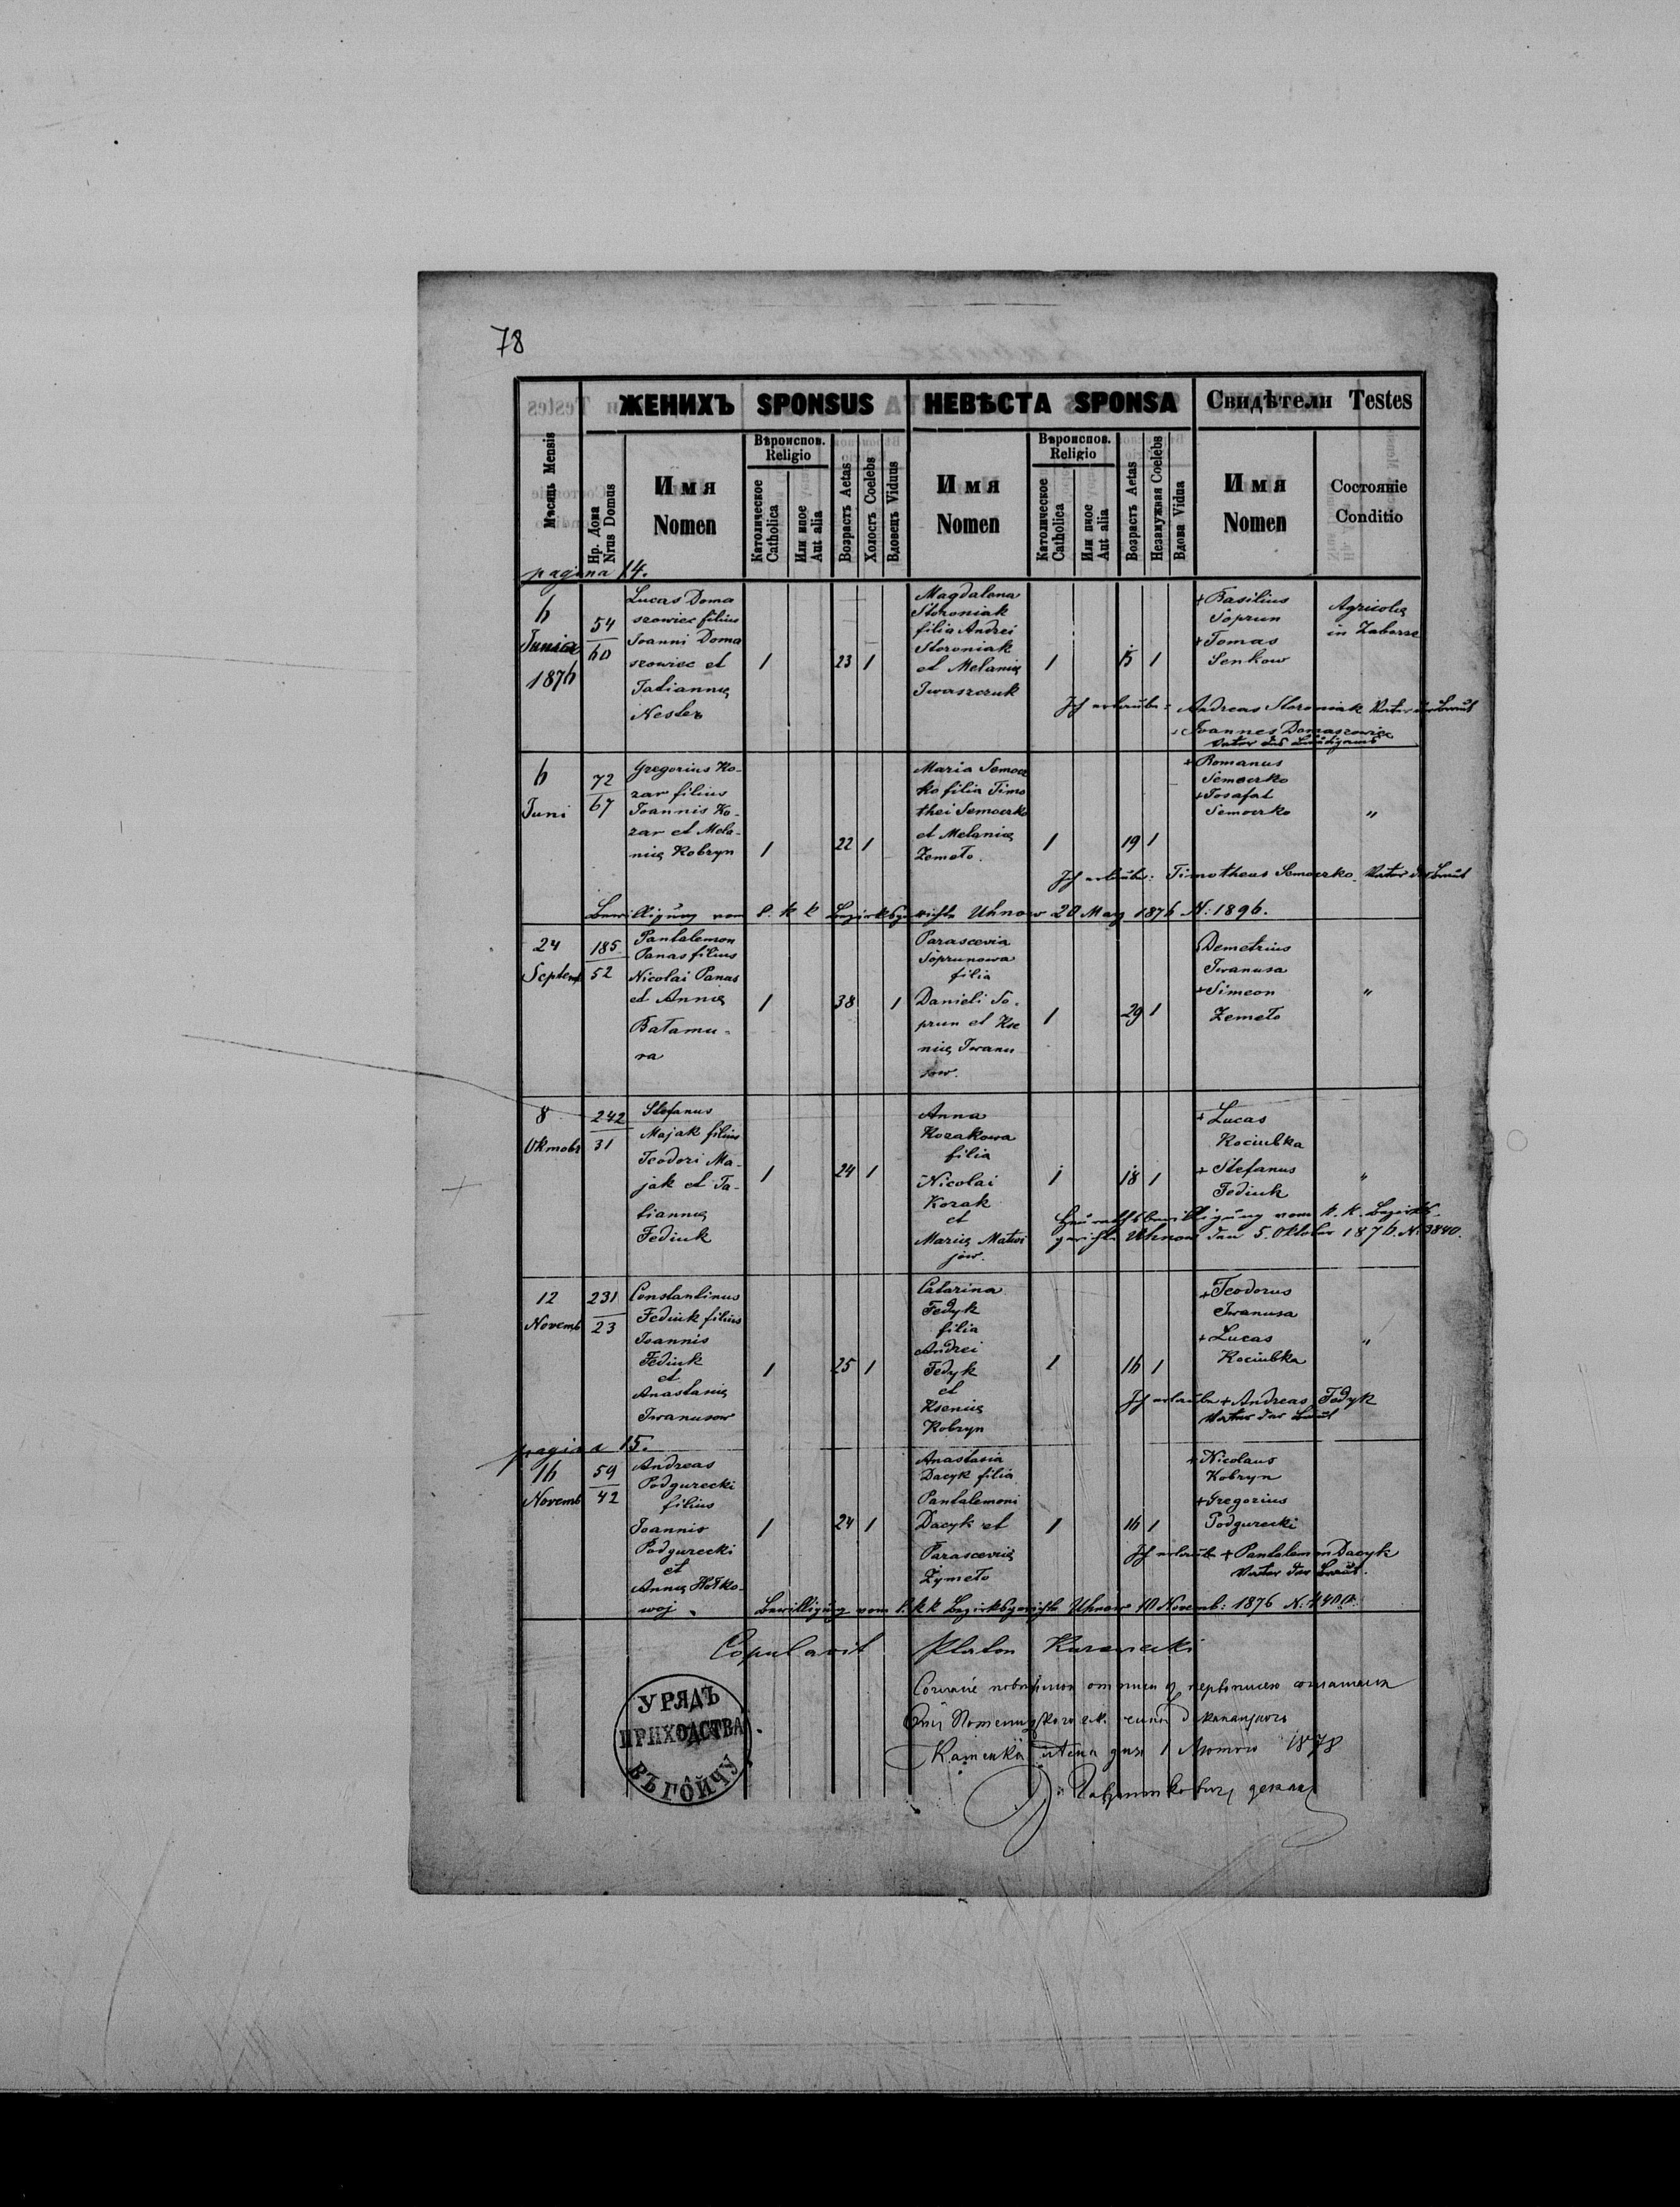 78
ЖЕНИХЪ SPONSUS НЕВѢСТА SPONSA Свидѣтели Testes
Мѣсяць Mensis
Нр. Дома
Nrus Domus
Имя
Nomen
Вѣроиспов.
Religio
Католическое
Catholica
Или иное
Aut alia
Возрастъ Aetas
Холостъ Coelebs
Вдовецъ Viduus
Имя
Nomen
Вѣроиспов.
Religio
Католическое
Catholica
Или иное
Aut alia
Возрастъ Aetas
Незамужная Coelebs
Вдова Vidua
Имя
Nomen
Состояніе
Conditio
pagina 14.
6
Junia
1876
54
60
Lucas Doma
szowiec filius
Joanni Doma
szowiec et
Tatianna
Nester
1 23 1
Magdalena
Storoniak
filia Andrei
Storoniak
et Melania
Iwaszczuk
1 15 1
+ Basilius
Soprun
+ Tomas
Senkow
Agricola
in Zaborze
Ich erlaube: Andreas Storoniak Vater der Braut
Joannes Domaszowiec
Vater des Bräutigams
6
Juni
72
67
Gregorius Ko-
zar filius
Joannis Ko-
zar et Mela-
nia Kobryn
1 22 1
Maria Semocz
ko filia Timo
thei Semoczko
et Melania
Zemeło.
1 19 1
+ Romanus
Semoczko
+ Josafat
Semoczko
"
Ich erlaube: Timotheus Semoczko Vater der Braut
Bewilligung vom l. k k Bezirksgerichte Uhnow 20 May 1876 N: 1896.
24
Septemb
185
52
Pantalemon
Panas filius
Nicolai Panas
et Anna
Batamu-
ra
1 38 1
Parascevia
Soprunowa
filia
Danieli So-
prun et Kse
nia Iwanu
sow.
1 29 1
Demetrius
Iwanusa
+ Simeon
Zemeło
"
8
Oktmobr
242
31
Stefanus
Majak filius
Teodori Ma-
jak et Ta-
tianna
Fediuk
1 24 1
Anna
Kozakowa
filia
Nicolai
Kozak
et
Maria Matwi
jow.
1 18 1
+ Lucas
Kociubka
+ Stefanus
Fediuk
"
Heurathsbewilligung vom k. k. Bezirks-
gerichte Uhnow den 5. Oktober 1876. N: 3840.
12
Novemb
231
23
Constantinus
Fediuk filius
Joannis
Fediuk
et
Anastasia
Iwanusow
1 25 1
Catarina
Fedyk
filia
Andrei
Fedyk
et
Ksenia
Kobryn
1 16 1
+ Teodorus
Iwanusa
+ Lucas
Kociubka
"
Ich erlaube + Andreas Fedyk
Vater der Braut
pagina 15.
16
Novemb
59
42
Andreas
Podgurecki
filius
Joannis
Podgurecki
et
Anna Hołko-
woj
1 24 1
Anastasia
Dacyk filia
Pantalemoni
Dacyk et
Parascevia
Zymeło
1 16 1
+ Nicolaus
Kobryn
+ Gregorius
Podgurecki
Ich erlaube + Pantalemon Dacyk
Vater der Braut.
Bewilligung vom l. k k Bezirksgerichte Uhnow 10 Novemb: 1876 N: 4400.
Copulavit Platon
УРЯДЪ
ПРИХОДСТВА
ВЪ ГОЙЧУ
1878